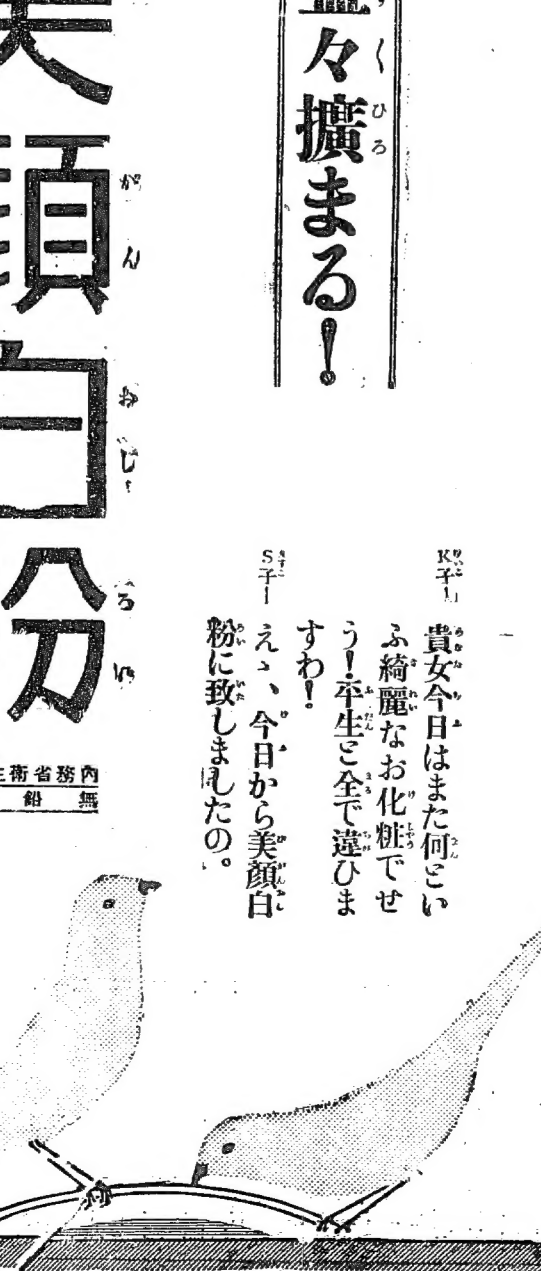 益々擴まる!
K子―
貴女今日はまた何とい
ふ綺麗なお化粧でせ
う!平生と全で違ひま
すわ!
S子―
えゝ、今日から美顔白
粉に致しましたの。
美顔白粉
内務省衛生
無鉛